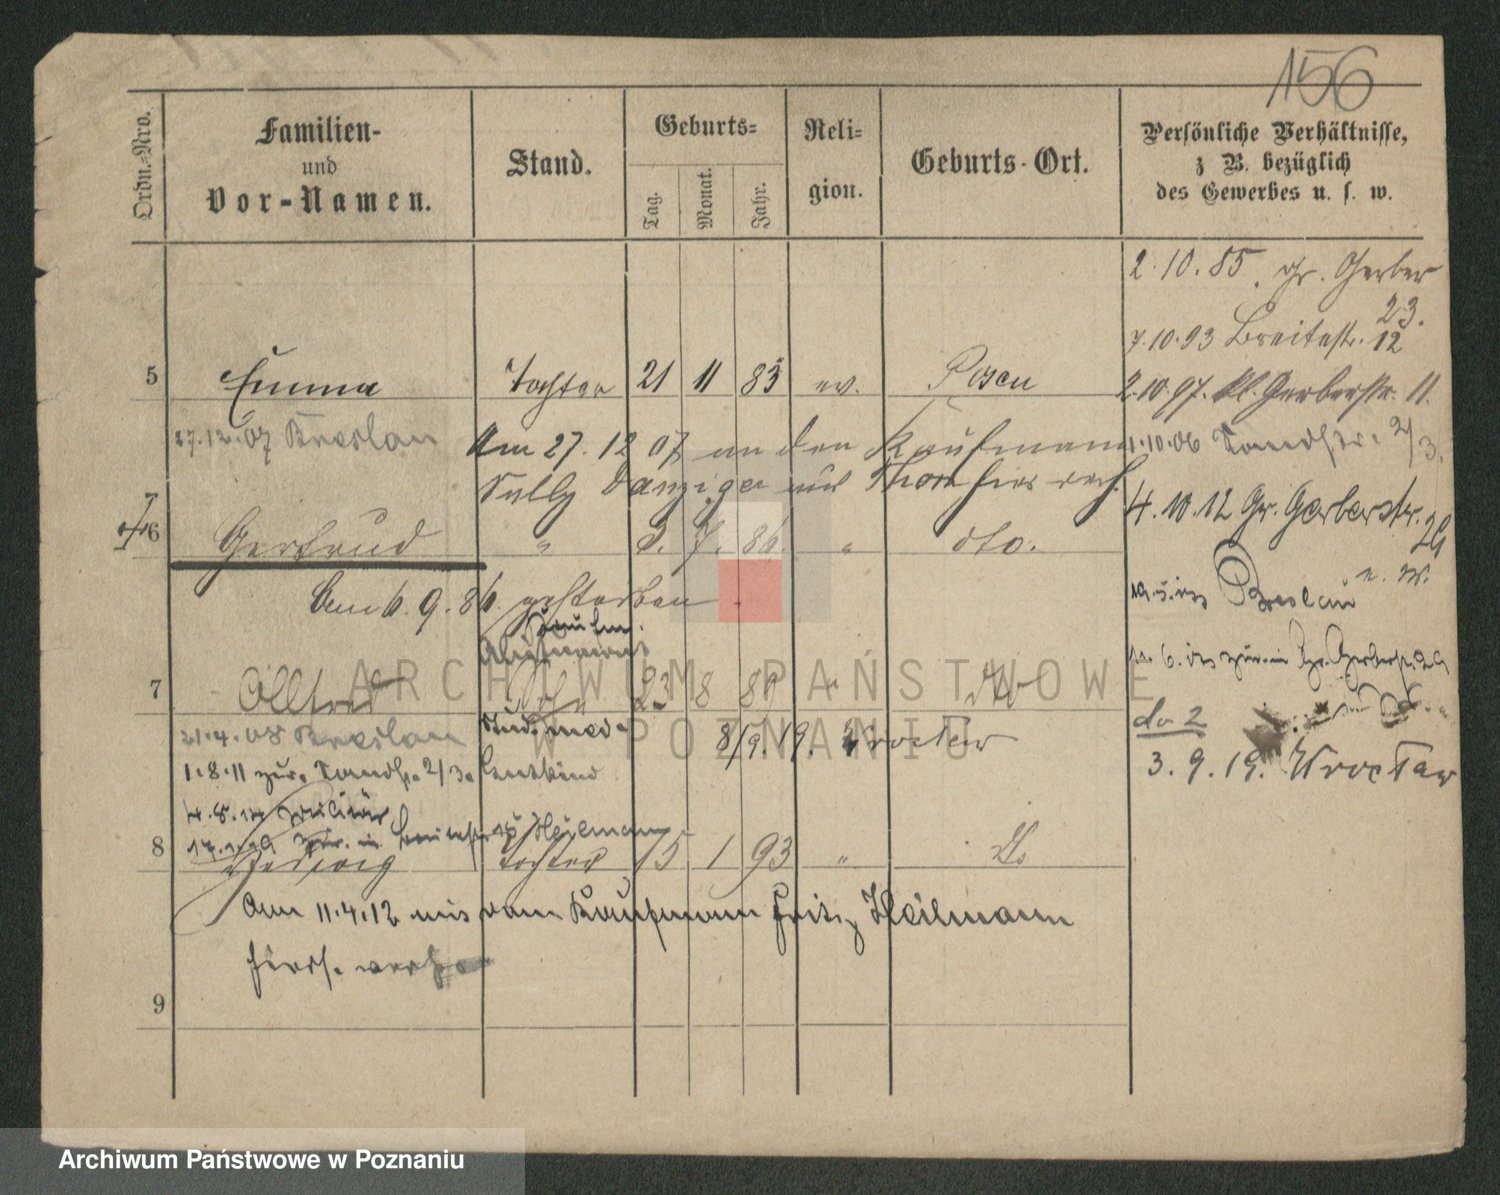 156
Ordn.=Nro.
Familien-
und
Vor-Namen.
Stand.
Geburts=
Tag.
Monat.
Jahr.
Reli=
gion.
Geburts-Ort.
Persönliche Verhältnisse,
z B. bezüglich
des Gewerbes u. s. w.
2.10.85. gr. Gerber
23.
7.10.93 Breitestr. 12
5 Emma Tochter 21 11 83 ev. Posen
2.10.97. kl. Gerberstr. 11.
27.12.07 Breslau
Am 27.12 07 an den Kaufmann
1.10.06
2/3.
Sally Danziger aus Thorn
4.10.12 Gr. Gerberstr.
29
7
6 Gertrud " 3. 7. 86 " dto.
Am 6.9.86 gestorben.
Breslau
7 Alfred 23 8 89 "
21.4.08 Breslau
Stud. med.
8/9.19. Wrocław
do 2
1.8.11 zur. 2/3
3.9.19. Wrocław
4.8.14 Militär
Heilmann
8 Hedwig Tochter 15 1 93 "
Am 11.4.12 mit dem Kaufmann Fritz Heilmann
9
ARCHIWUM PAŃSTWOWE
W POZNANIU
Archiwum Państwowe w Poznaniu